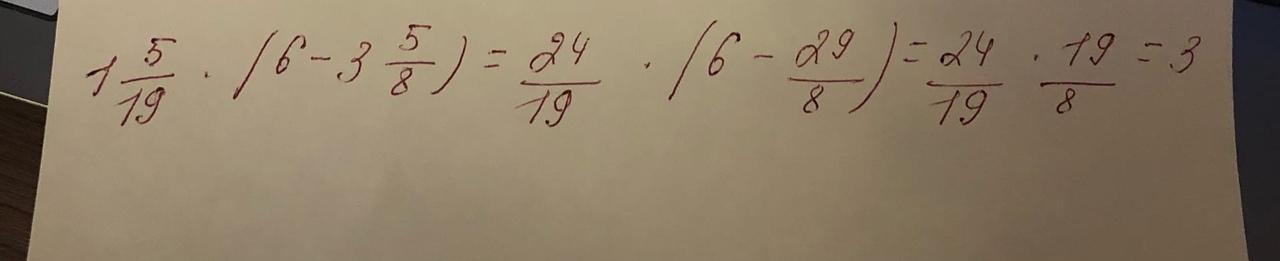 1 5/19 · (6 - 3 5/8) = 24/19 · (6 - 29/8) = 24/19 · 19/8 = 3